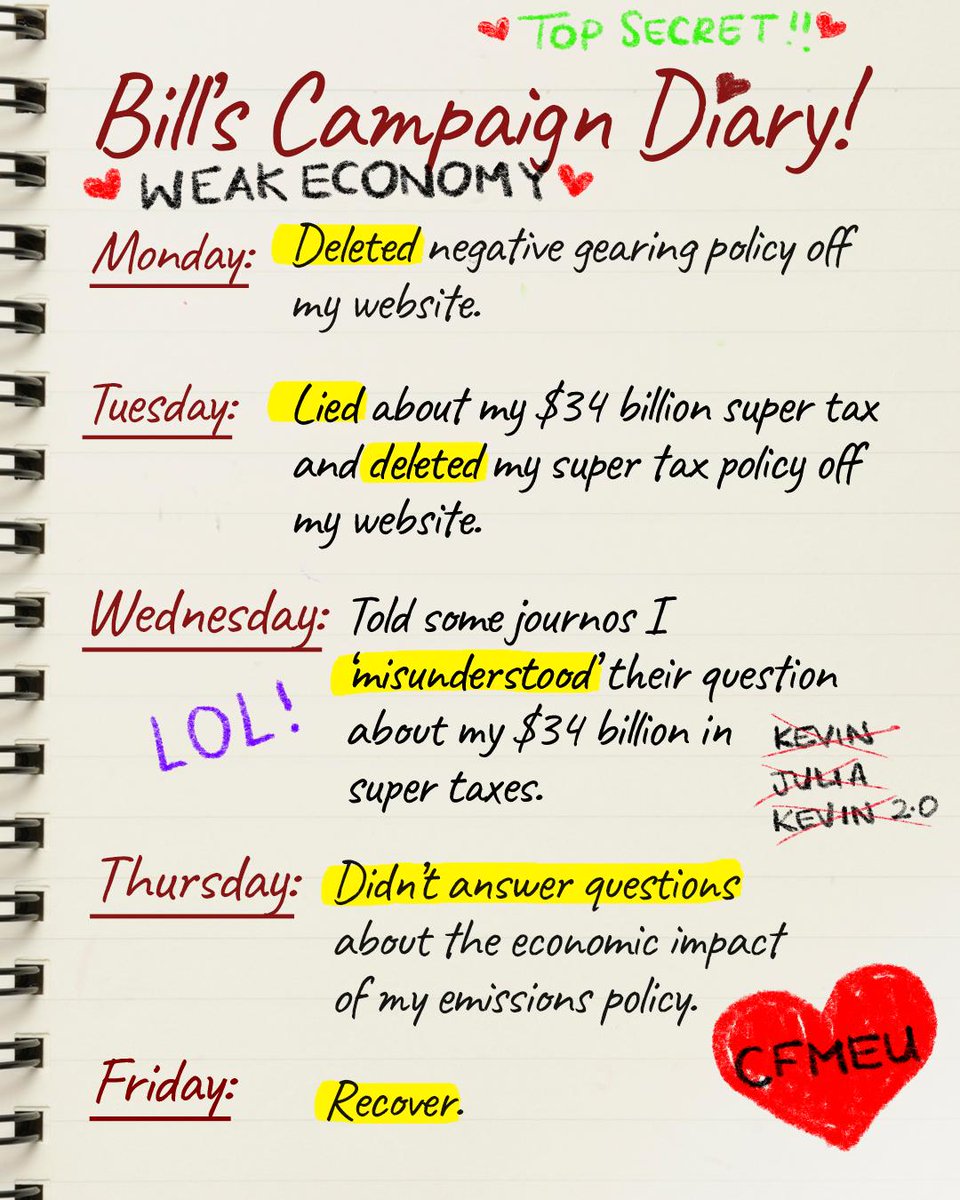 TOP SECRET!!
Bill's Campaign Diary!
WEAK ECONOMY
Monday: Deleted negative gearing policy off
my website.
Tuesday: Lied about my $34 billion super tax
and deleted my super tax policy off
my website.
Wednesday: Told some journos I
'misunderstood' their question
about my $34 billion in
super taxes.
LOL!
KEVIN
JULIA
KEVIN 2.0
Thursday: Didn't answer questions
about the economic impact
of my emissions policy.
CFMEU
Friday: Recover.